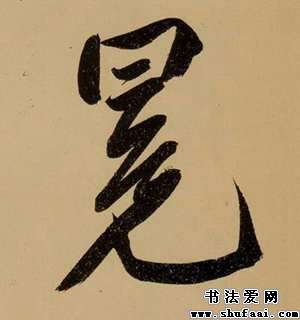 晃
书法爱网
www.shufaai.com